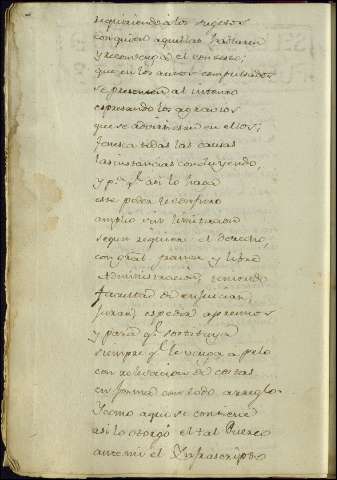 requiriendo á los sugetos
con quien aquellas trataren
y reconvenga el contexto;
que en los autos compulsados
se presenten al intento
espresando los agravios
que se advirtiesen en ellos;
fenesca todas las causas
las instancias concluyendo,
y p.ª q.e asi lo haga
ese poder le confiero
amplio sin limitacion
segun requiere el derecho,
con gral franca y libre
Administracion, teniendo
facultad de enjuiciar,
jurar, espedir apremios
y para q.e sostituya
siempre q.e le venga a pelo
con relevacion de costas
en forma con todo arreglo.
Y como aqui se contiene
asi lo otorgó el tal Puerco
ante mi el Infrascripto